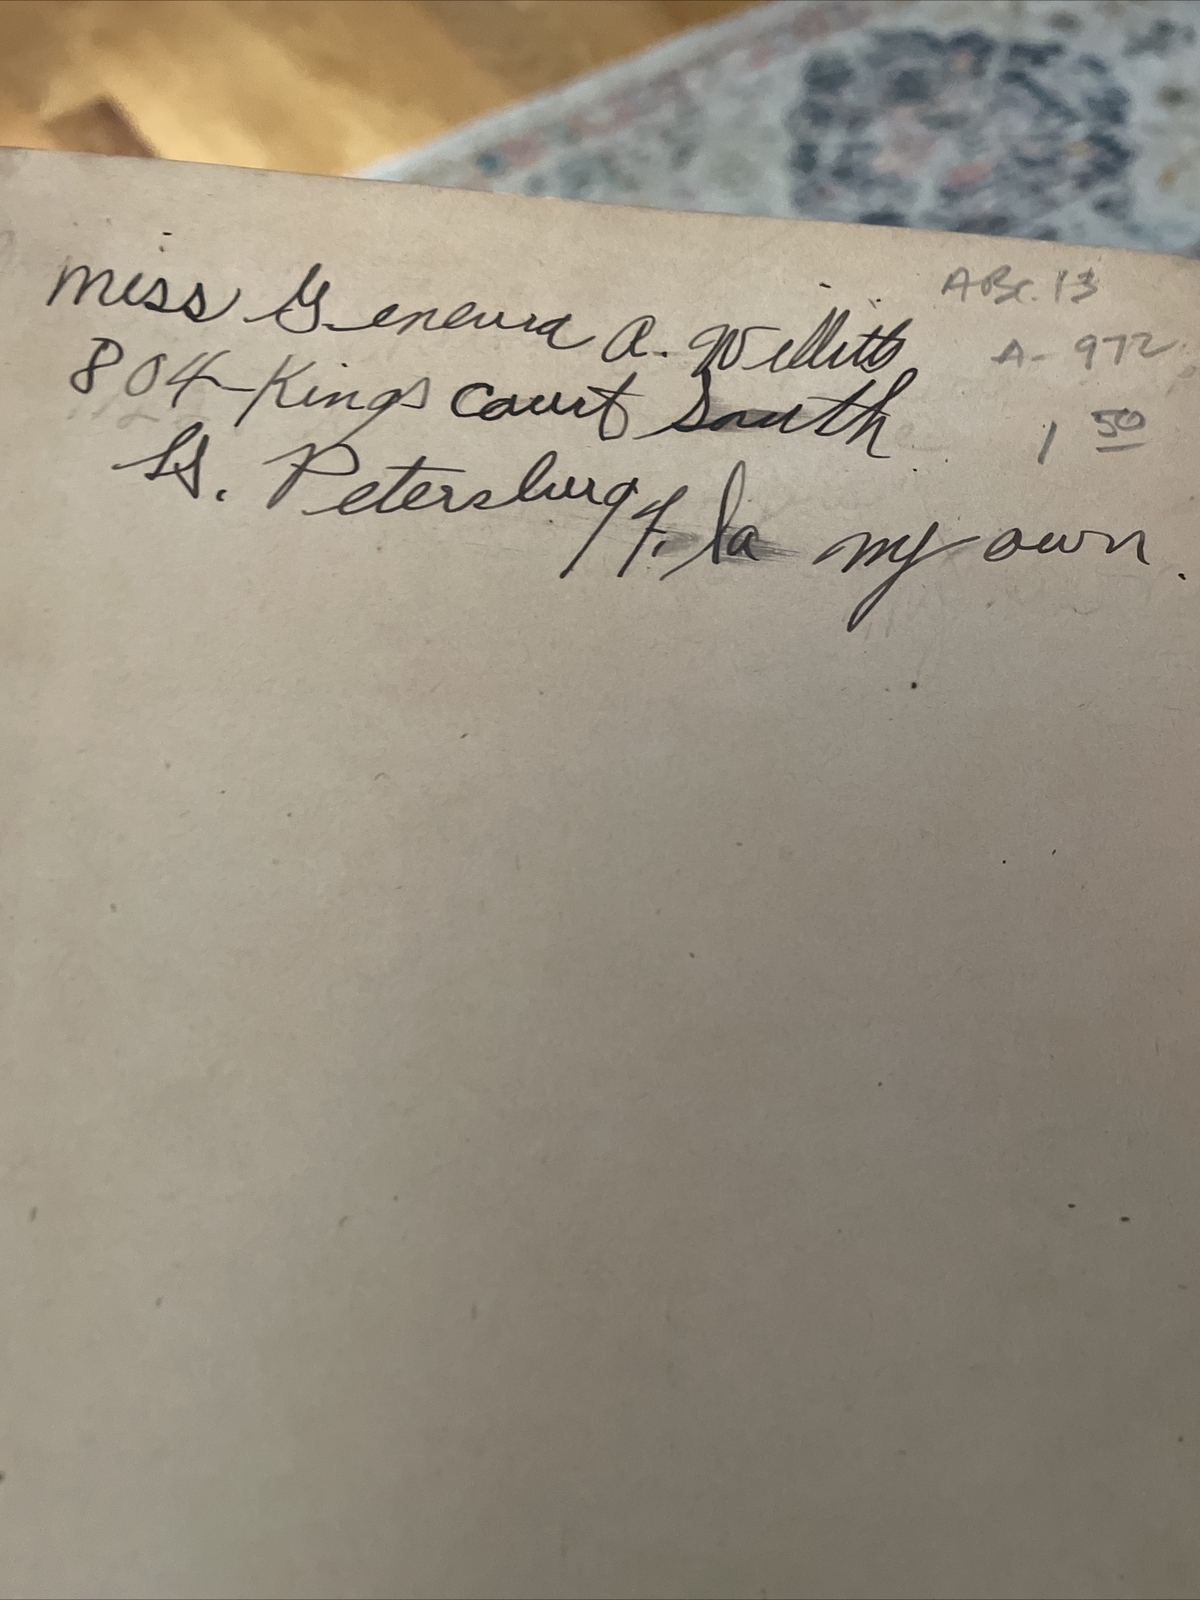 Miss Geneura A. Willitts
804-Kings Court South
St. Petersburg, Fla my own.
A-972
1 50